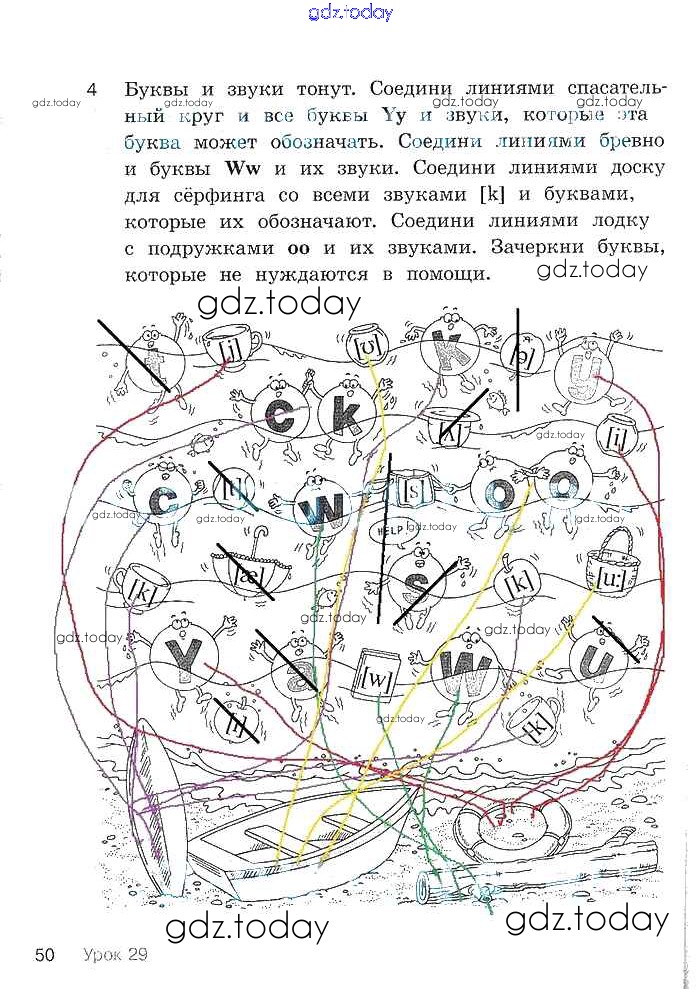 gdz.today
4 Буквы и звуки тонут. Соедини линиями спасатель-
gdz.today gdz.today gdz.today gdz.today
ный круг и все буквы Yy и звуки, которые эта
буква может обозначать. Соедини линиями бревно
и буквы Ww и их звуки. Соедини линиями доску
для сёрфинга со всеми звуками [k] и буквами,
которые их обозначают. Соедини линиями лодку
с подружками oo и их звуками. Зачеркни буквы,
которые не нуждаются в помощи.
gdz.today
gdz.today
t [j] [ʊ] k y
gdz.today
c k
gdz.today [i]
c w [s] o o
gdz.today gdz.today gdz.today
HELP!
[k] [æ] s [k] [u:]
gdz.today gdz.today gdz.today
Y a [w] w u
gdz.today
[k]
gdz.today gdz.today
50 Урок 29